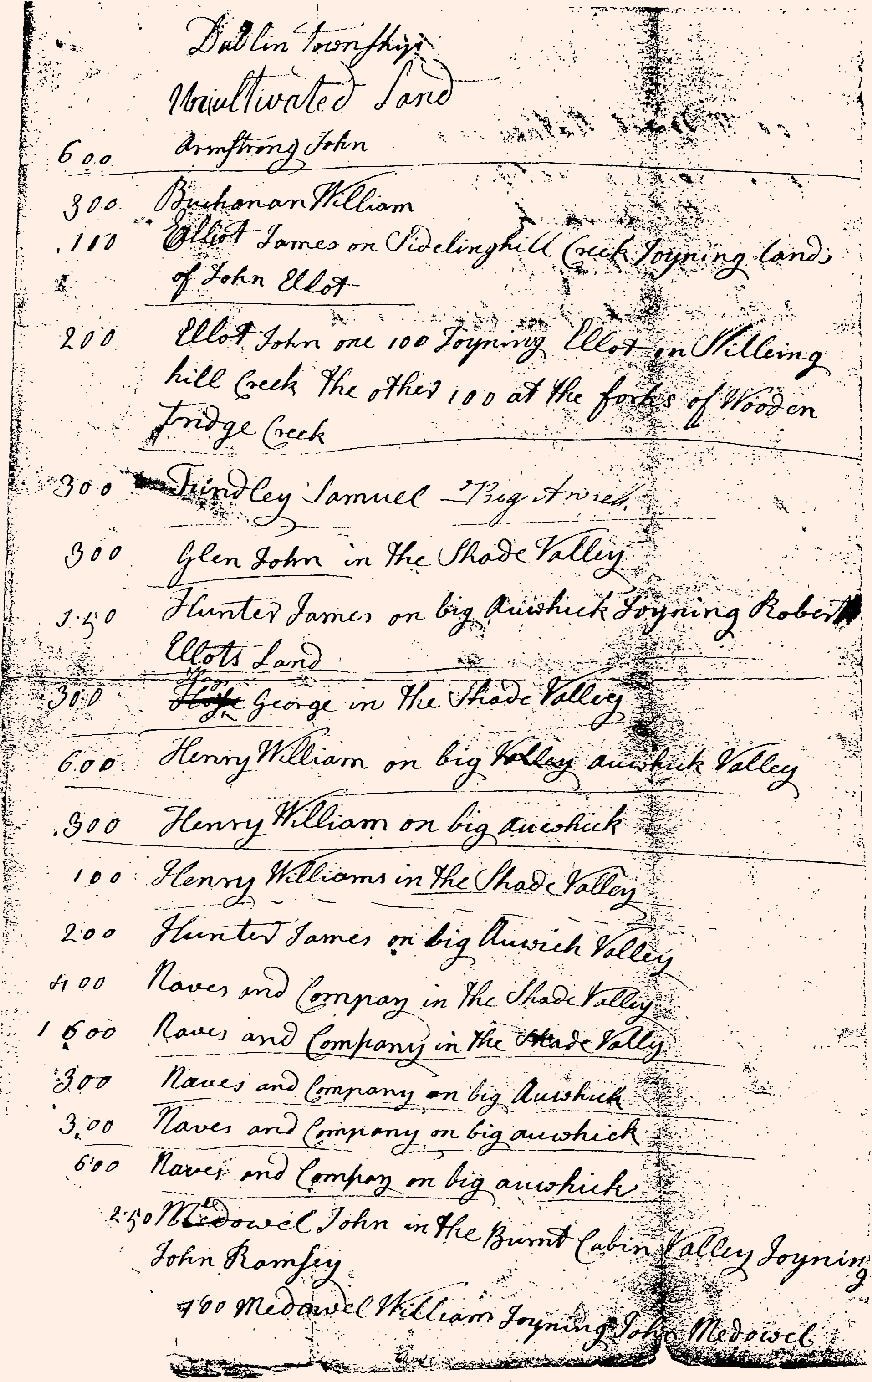 Dublin Township
Uncultivated Land
600 Armstrong John
300 Buchanan William
100 Elliot James on Sidelinghill Creek Joyning lands
of John Ellot
200 Ellot John one 100 Joyning Ellot on
hill Creek the other 100 at the forks of Wooden
bridge Creek
300 Findley Samuel Big
300 Glen John in the Shade Valley
150 Hunter James on big Auwhick Joyning Robert
Ellots Land
300 George in the Shade Valley
600 Henry William on big Valley auwhick Valley
300 Henry William on big auwhick
100 Henry Williams in the Shade Valley
200 Hunter James on big Auwich Valley
400 Naves and Compay in the Shade Valley
1600 Naves and Company in the Shade Vally
300 Naves and Company on big Auwhick
300 Naves and Company on big auwhick
600 Naves and Compay on big auwhick
250 Mcdowel John in the Burnt Cabin Valley Joyning
John Ramsey
400 Medowel William Joyning John Medowel